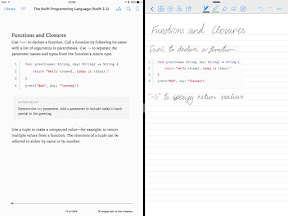 Library
The Swift Programming Language (Swift 2.2)
Functions and Closures
Use func to declare a function. Call a function by following its name
with a list of arguments in parentheses. Use -> to separate the
parameter names and types from the function's return type.
1 func greet(name: String, day: String) -> String {
2 return "Hello \(name), today is \(day)."
3 }
4 greet("Bob", day: "Tuesday")
EXPERIMENT
Remove the day parameter. Add a parameter to include today's lunch
special in the greeting.
Use a tuple to make a compound value—for example, to return
multiple values from a function. The elements of a tuple can be
referred to either by name or by number.
Functions and Closures
Func to declare a function
func greet(name: String, day: String) -> String {
return "Hello \(name), today is \(day)."
}
greet("Bob", day: "Tuesday")
"->" to specify return values